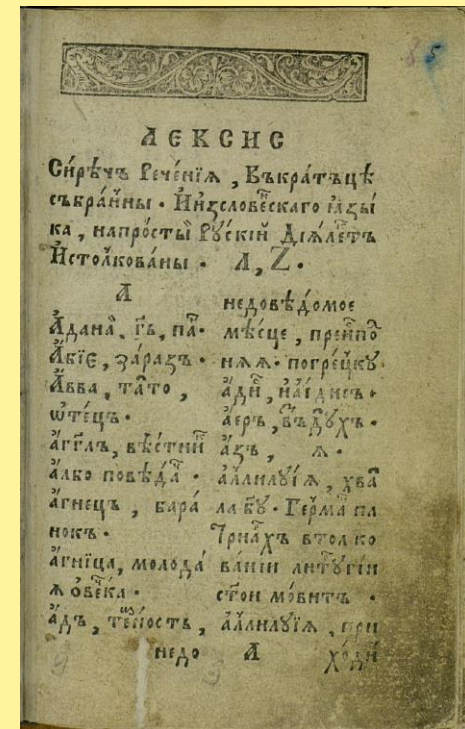 ЛЕКСИС
Си́рѣчъ Рече́нїѧ, Въкра́тъцѣ
събра́нны. И҆изсловѣ́скаго ꙗ҆зы́
ка, напро́стый Рꙋ́скїй Дїѧле́тъ
И҆столко́ваны. А, Z.
А
А҆дана́й, гь҃, па҃.
А҆бїе, за́разъ.
А҆вва, та́то,
ѿте́цъ.
а҆гг҃лъ, вѣ́стни
а҆лко повѣ́да.
а҆гнецъ, бара́
нокъ.
а҆гни́ца, молода́
ѧ ѻ҆ве́чка.
а҆дъ, те́мность,
недо
недовѣ́домое
мѣ́сце, преиспо́
нѧѧ. погре́цкꙋ
а҆ди́, на́идисъ.
а҆еръ, въздꙋ́хъ.
а҆зъ, ѧ.
а҆ллилꙋ́їѧ, хва
ла бг҃ꙋ. Ге́рма па
трїа́хъ втолко
ва́нїи литꙋ́гїи
стои мо́витъ.
а҆ллилꙋ́їѧ, при
А ходи́
85